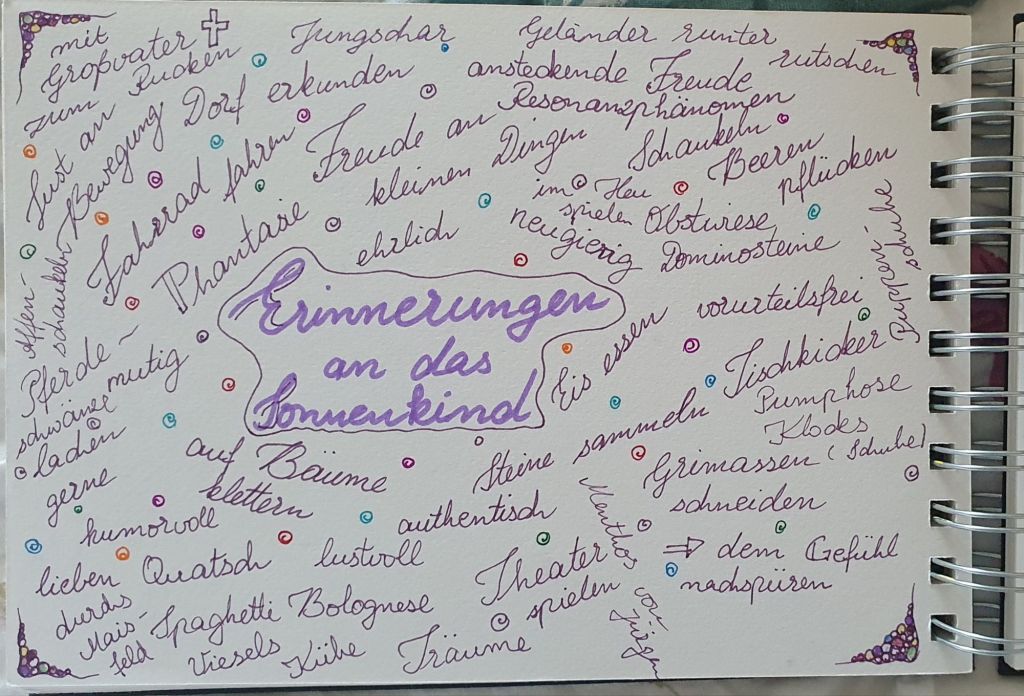 mit
Großvater
zum Rucken
Jungschar
Geländer runter
rutschen
Lust an
Bewegung
Dorf erkunden
ansteckende Freude
Resonanzphänomen
Freude an
kleinen Dingen
Schaukeln
Beeren
pflücken
Fahrrad fahren
Phantasie
ehrlich
im Heu
spielen
neugierig
Obstwiese,
Dominosteine
Affen-
schaukeln
Pferde-
schwänze
mutig
Erinnerungen
an das
Sonnenkind
Eis essen
vorurteilsfrei
schuhe
Tischkicker
Pumphose
Klodes
(Schuhe)
lachen
gerne
auf Bäume
klettern
Steine sammeln
Grimassen
schneiden
humorvoll
authentisch
lieben Quatsch
lustvoll
Theater
spielen
Menthos von
Jürgen
⇒ dem Gefühl
nachspüren
durchs
Mais-
feld
Spaghetti Bolognese
Viesels
Kühe
Träume